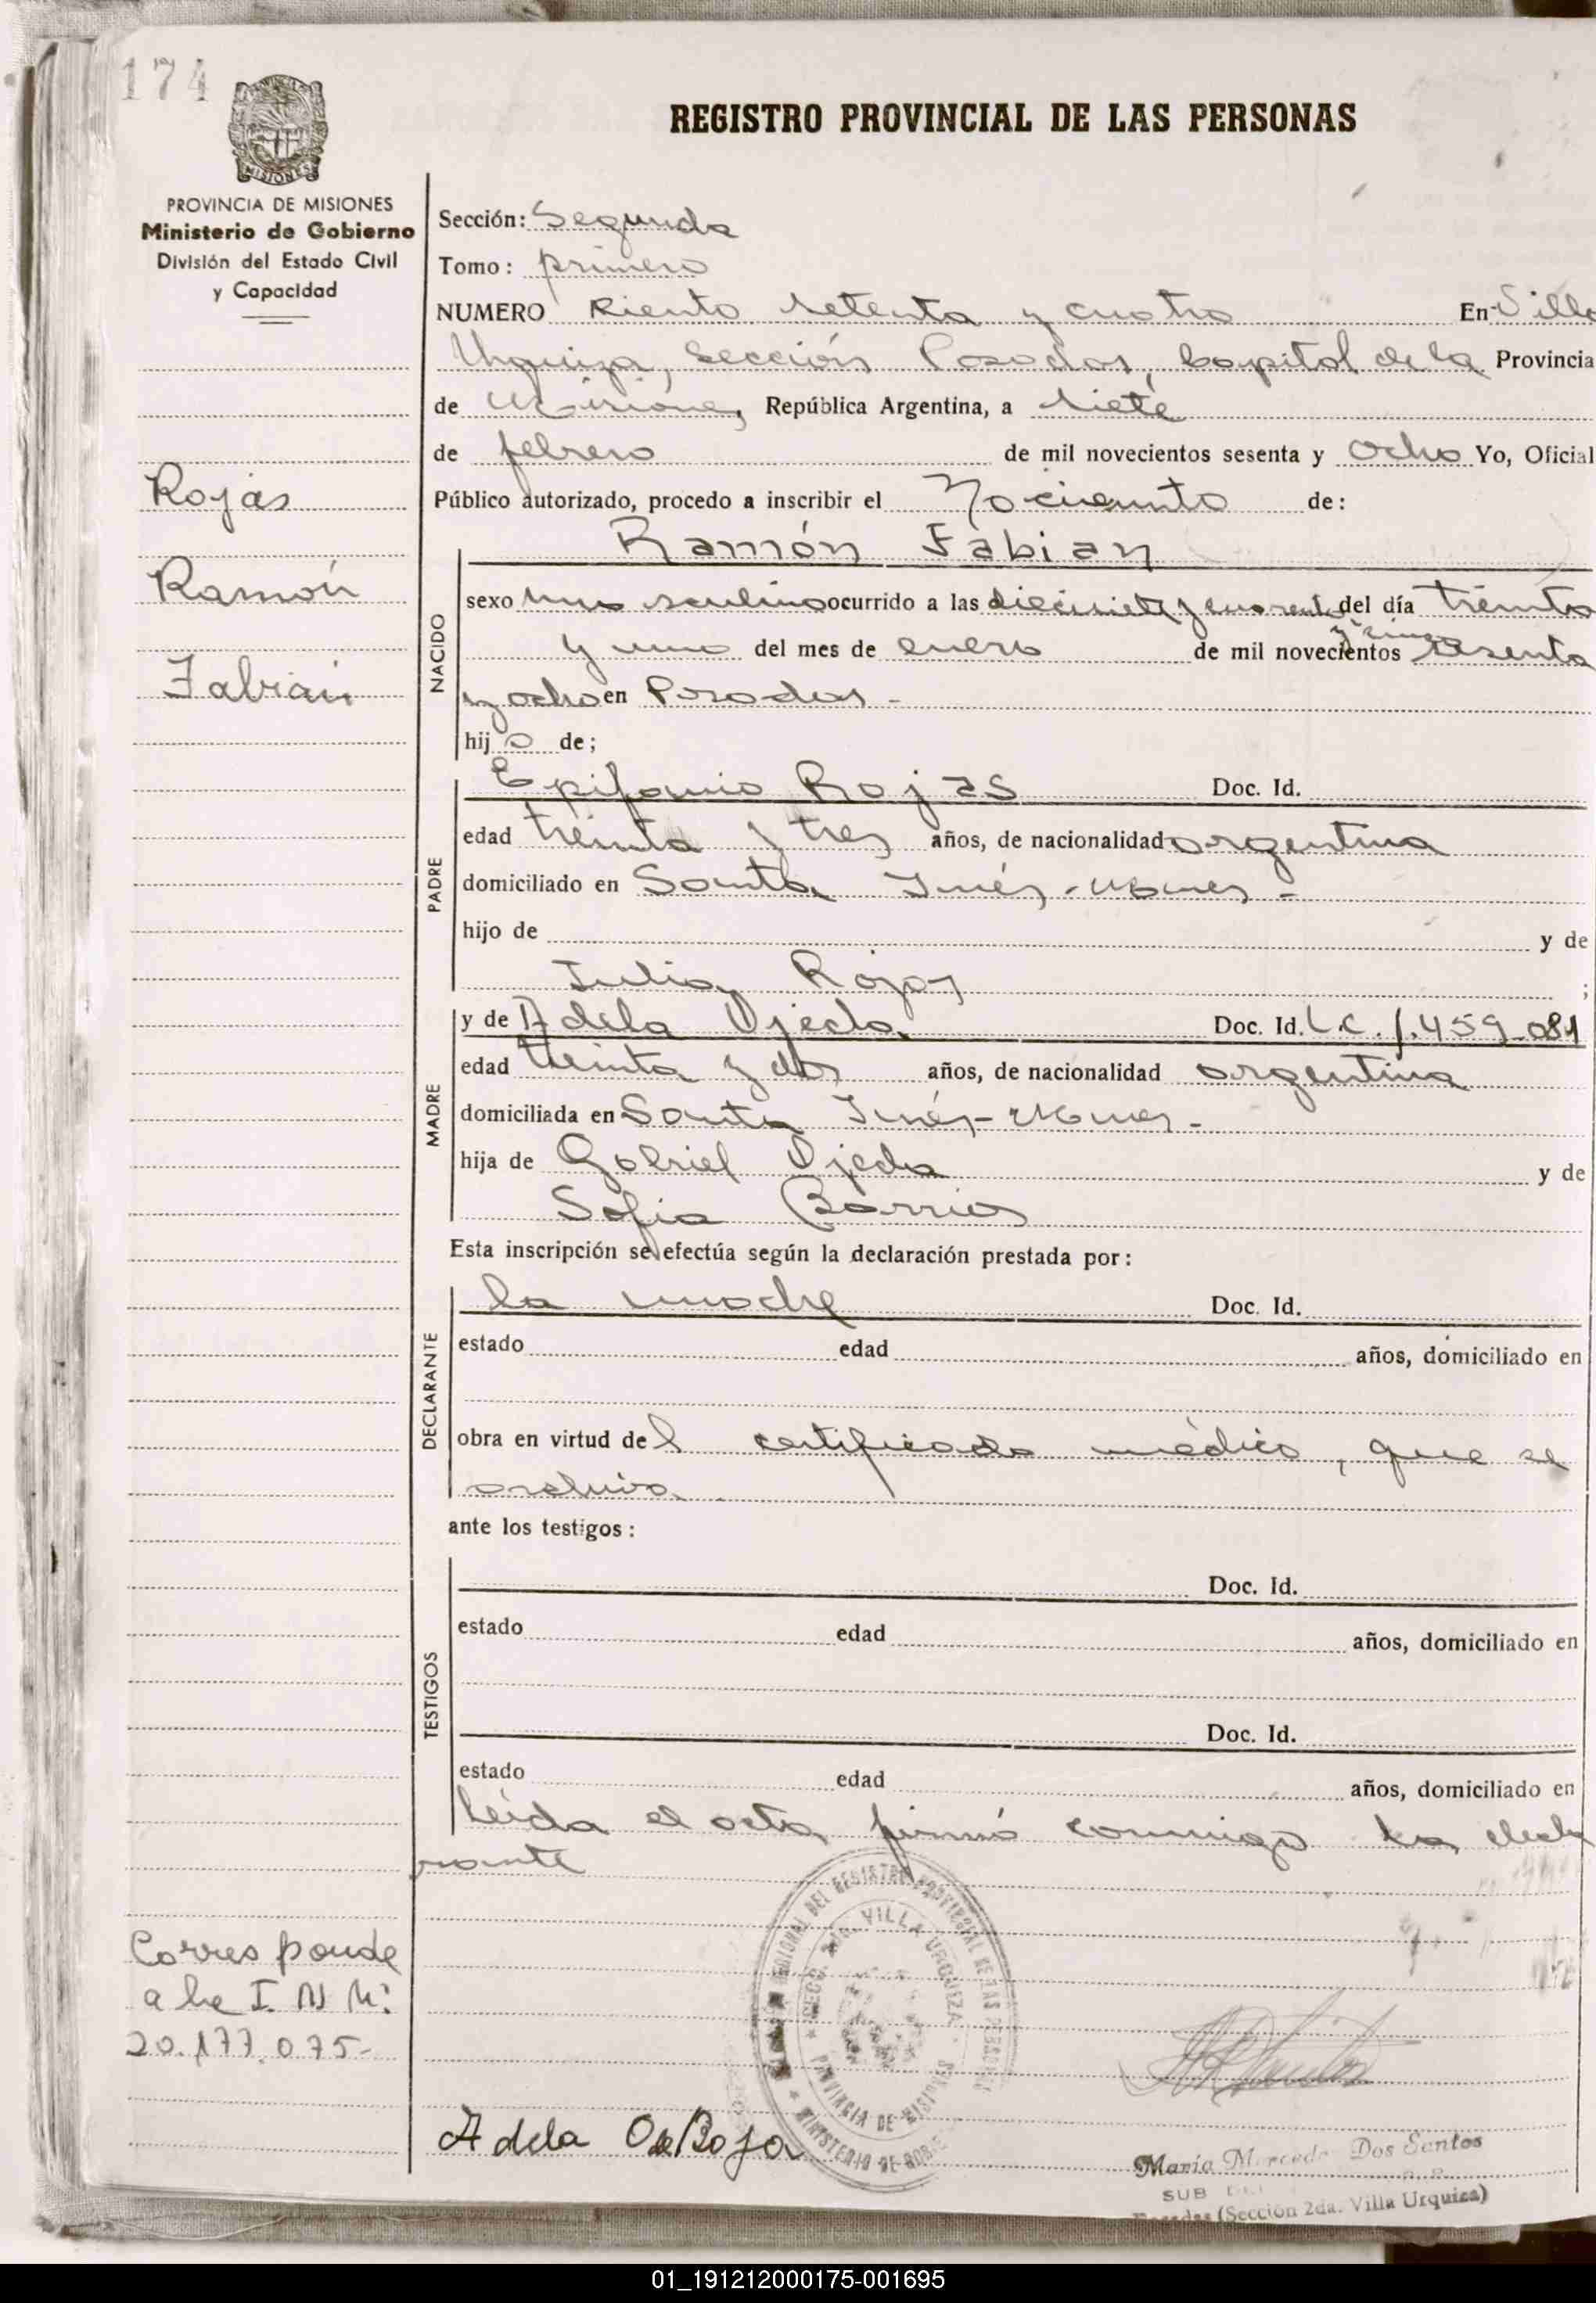 174
REGISTRO PROVINCIAL DE LAS PERSONAS
MISIONES
PROVINCIA DE MISIONES
Ministerio de Gobierno
División del Estado Civil
y Capacidad
Rojas
Ramón
Fabián
Sección: Segunda
Tomo: primero
NUMERO Ciento setenta y cuatro En Villa
Urquiza, Sección Posadas, Capital de la Provincia
de Misiones, República Argentina, a siete
de febrero de mil novecientos sesenta y ocho Yo, Oficial
Público autorizado, procedo a inscribir el Nacimiento de:
Ramón Fabian
NACIDO
sexo masculino ocurrido a las diecisiete y cuarenta y cinco del día treinta
y uno del mes de enero de mil novecientos sesenta
y ocho en Posadas -
hijo de;
PADRE
Epifanio Rojas Doc. Id.
edad treinta y tres años, de nacionalidad argentina
domiciliado en Santa Inés - Mnes -
hijo de y de
Julia Rojas ;
MADRE
y de Adela Ojeda Doc. Id. L.C. 1.459.081
edad treinta y dos años, de nacionalidad argentina
domiciliada en Santa Inés - Mnes -
hija de Gabriel Ojeda y de
Sofia Barrios
Esta inscripción se efectúa según la declaración prestada por:
DECLARANTE
la madre Doc. Id.
estado edad años, domiciliado en
obra en virtud del certificado médico, que se
archiva
ante los testigos:
TESTIGOS
Doc. Id.
estado edad años, domiciliado en
Doc. Id.
estado edad años, domiciliado en
Leída el acta firmó conmigo la decla
rante
Corresponde
a la I. N M:
20.177.075-
REGIONAL DEL REGISTRO PROVINCIAL DE LAS PERSONAS
SECC. 2da. VILLA URQUIZA
PROVINCIA DE MISIONES
MINISTERIO DE GOB
Adela O de Roja
María Mercedes Dos Santos
SUB
Posadas (Sección 2da. Villa Urquiza)
01_191212000175-001695